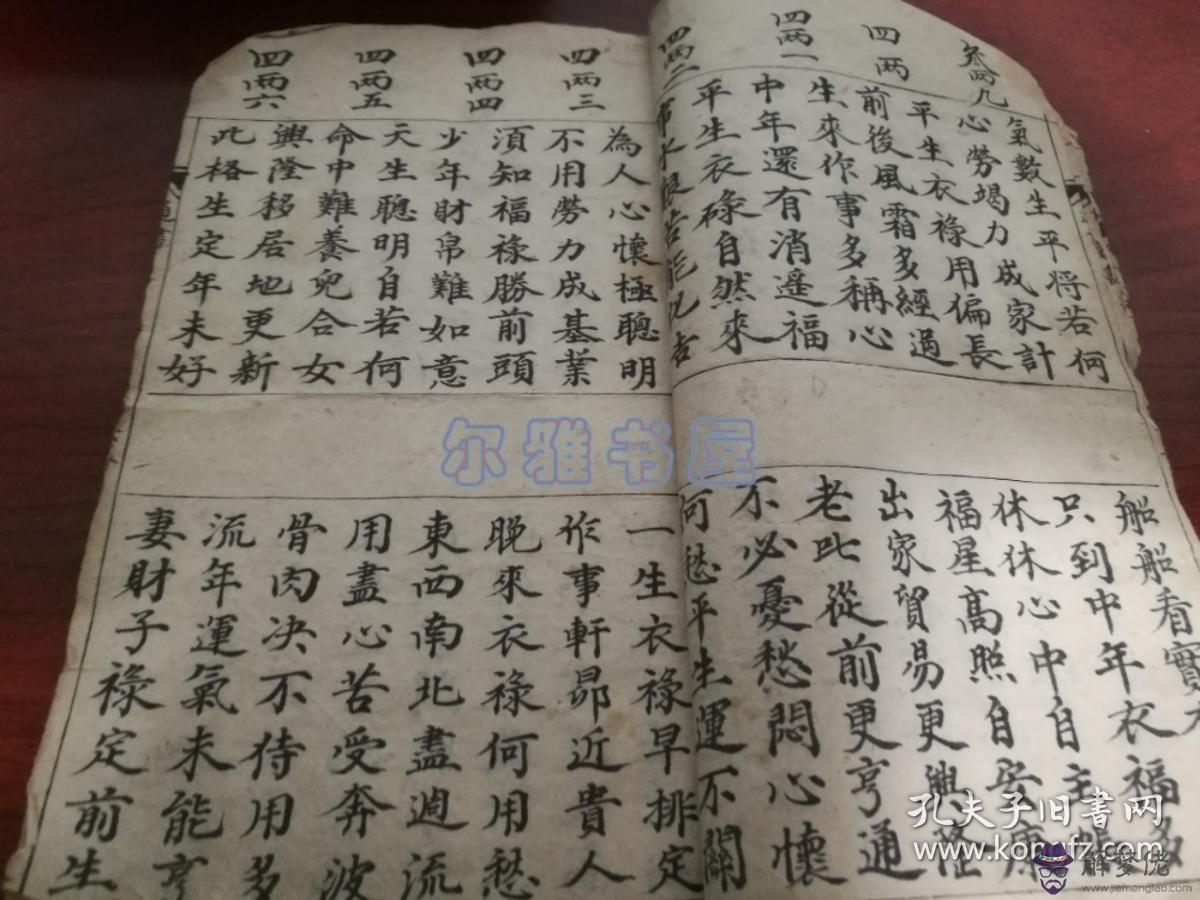 叁两九
四两
四两一
四两二
氣數生平將若何
心勞竭力成家計
平生衣祿用偏長
前後風霜多經過
生來作事多稱心
中年還有消遙福
平生衣碌自然來
船船看
只到中年衣福多
休休心中自主
福星高照自安康
出家貿易更興隆
老比從前更亨通
不必憂愁悶心懷
何愁平生運不關
四两三
四两四
四两五
四两六
為人心懷極聰明
不用勞力成基業
須知福祿勝前頭
少年財帛難如意
天生聰明自若何
命中難養兒合女
興隆移居地更新
此格生定年未好
一生衣祿早排定
作事軒昂近貴人
晚來衣祿何用愁
東西南北盡週流
用盡心苦受奔波
骨肉决不待用多
流年運氣未能亨
妻財子祿定前生
尔雅书屋
孔夫子旧书网
www.kongfz.com
解梦佬
www.jiemenglao.com